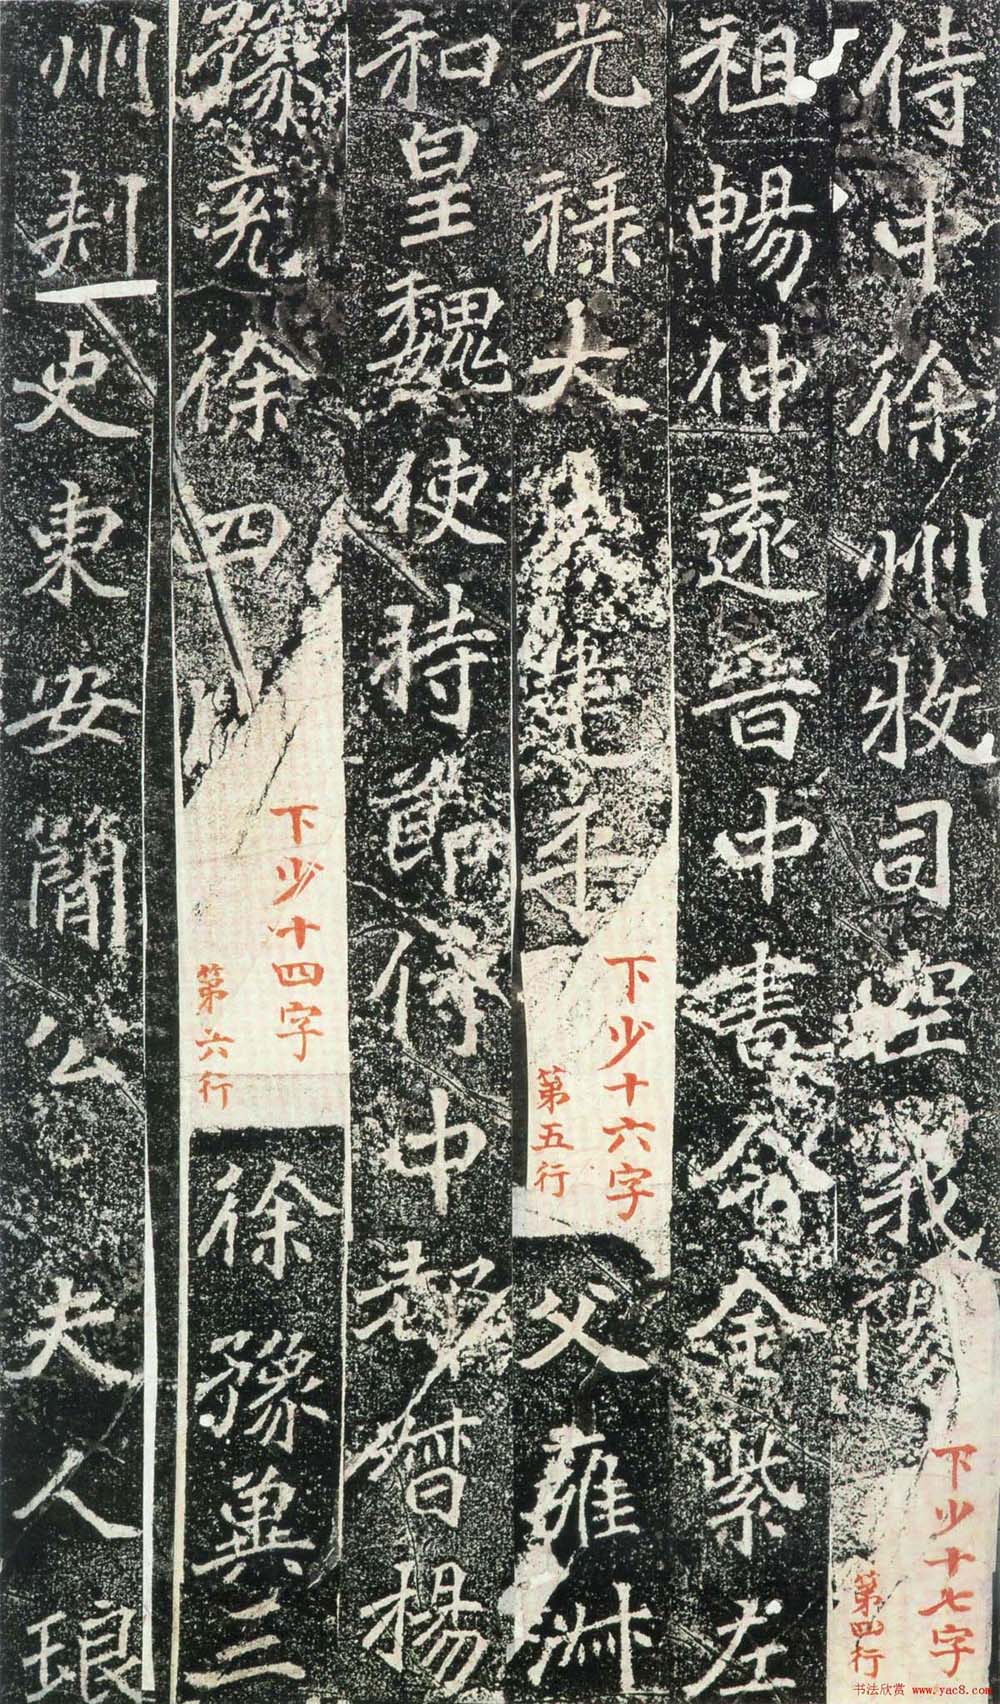 侍中徐州牧司空義陽
下少十七字
第四行
祖暢仲遠晉中書令金紫左
光祿大夫建
下少十六字
第五行
父雍淋
和皇魏使持節侍中都督揚
豫兗徐四州
下少十四字
第六行
徐豫冀三
州刺史東安簡公夫人琅
书法欣赏 www.yac8.com